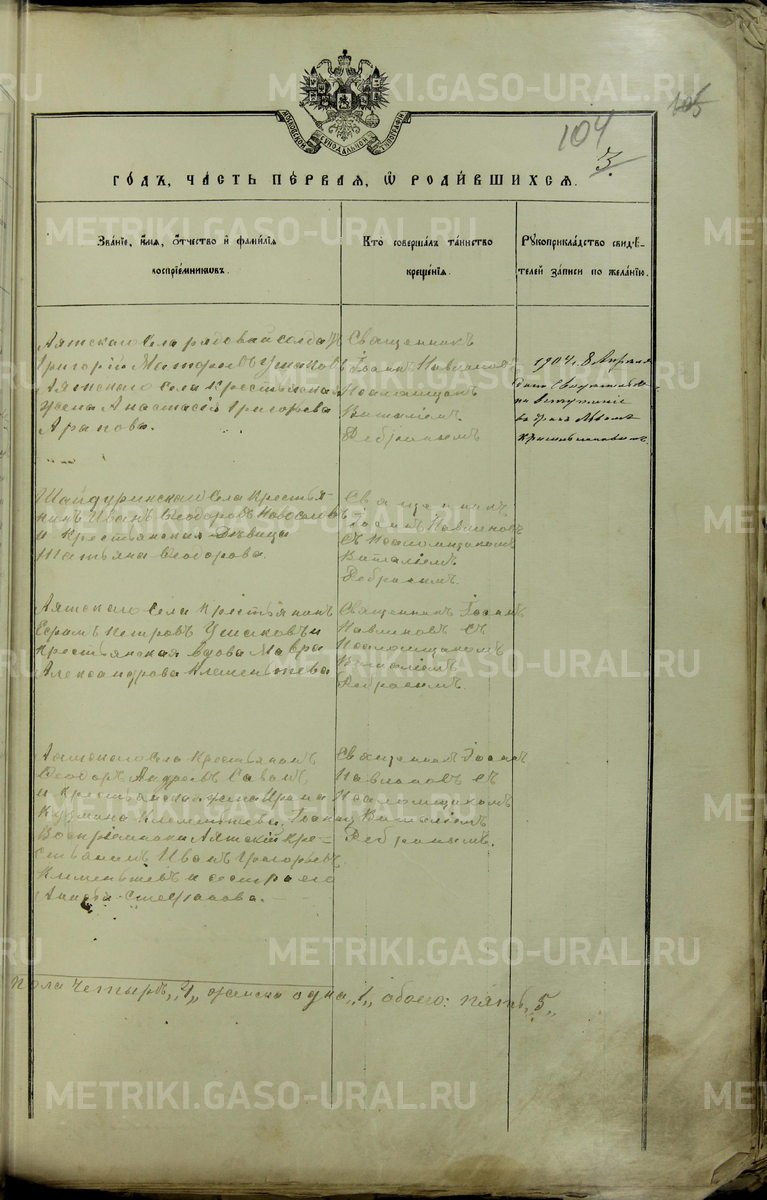 METRIKI.GASO-URAL.RU
МОСКОВСКОЙ СѴНОДАЛЬНОЙ ТИПОГРАФІИ
104
105
3.
ГО́ДЪ, ЧА́СТЬ ПЕ́РВАЯ, Ѽ РОДИ́ВШИХСЯ.
Зва́ніе, и́мя, ѻ́тчество и҆ фами́лія
воспріе́мниковъ.
Кто̀ соверша́лъ та́инство
креще́нія.
Рꙋкоприкла́дство свидѣ́-
телей за́писи по жела́нію.
Аятскаго села рядовый солдатъ
Григорій Матфеевъ Ушаковъ
Аятскаго села крестьянская
жена Анастасія Григорьева
Арапова.
Священникъ
Іоаннъ Павлиновъ
Псаломщикомъ
Виталіемъ
Ребринымъ
1904 г. 8 Апреля
дано Свидетельство
на вступленіе
въ бракъ
Шайдуринскаго села крестья-
нинъ Иванъ Ѳеодоровъ Новоселовъ
и крестьянская девица
Татьяна Ѳеодорова
Священникъ
Іоаннъ Павлиновъ
съ Псаломщикомъ
Виталіемъ
Ребринымъ.
Аятскаго села крестьянинъ
Ефремъ Петровъ Ушаковъ и
крестьянская вдова Мавра
Александрова Клементьева
Священникъ Іоаннъ
Павлиновъ съ
Псаломщикомъ
Виталіемъ
Ребринымъ.
Аятскаго села крестьянинъ
Ѳеодоръ Андреевъ
и крестьянская жена Ирина
Кузмина Клементьева, Іоанна
Воспріемники Аятскій кре-
стьянинъ Иванъ Григорьевъ
Клементьевъ и сестра его
Стефанова.
Священникъ Іоаннъ
Павлиновъ съ
Псаломщикомъ
Виталіемъ
Ребринымъ.
пола четыре „4„ женска одна „1„ обоего: пять „5„